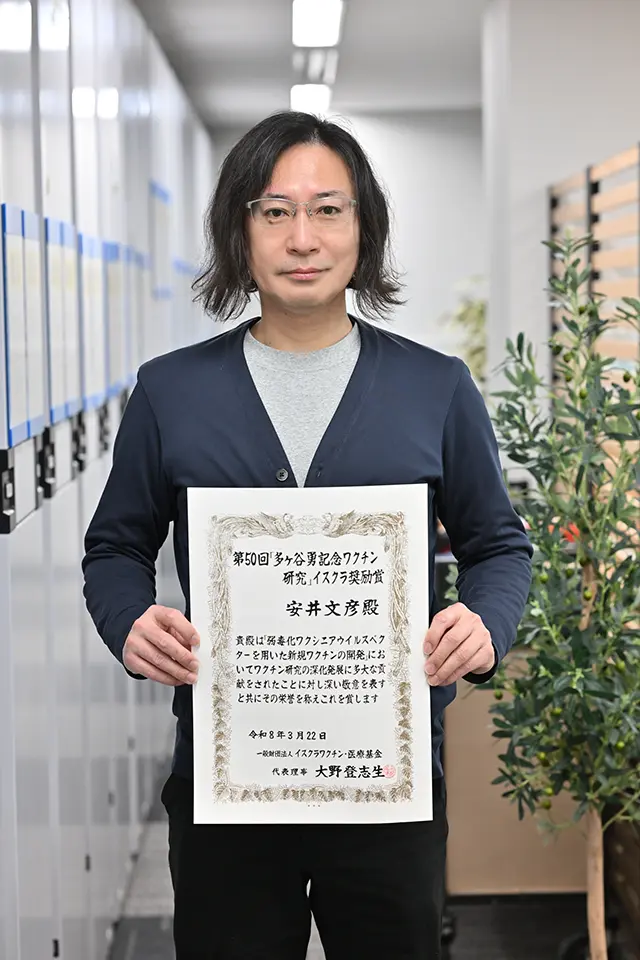 第50回「多ヶ谷勇記念ワクチン
研究」イスクラ奨励賞
安井文彦殿
貴殿は「弱毒化ワクシニアウイルスベク
ターを用いた新規ワクチンの開発」にお
いてワクチン研究の深化発展に多大な貢
献をされたことに対し深い敬意を表す
と共にその栄誉を称えこれを賞します
令和8年3月22日
一般財団法人 イスクラワクチン・医療基金
代表理事 大野登志生